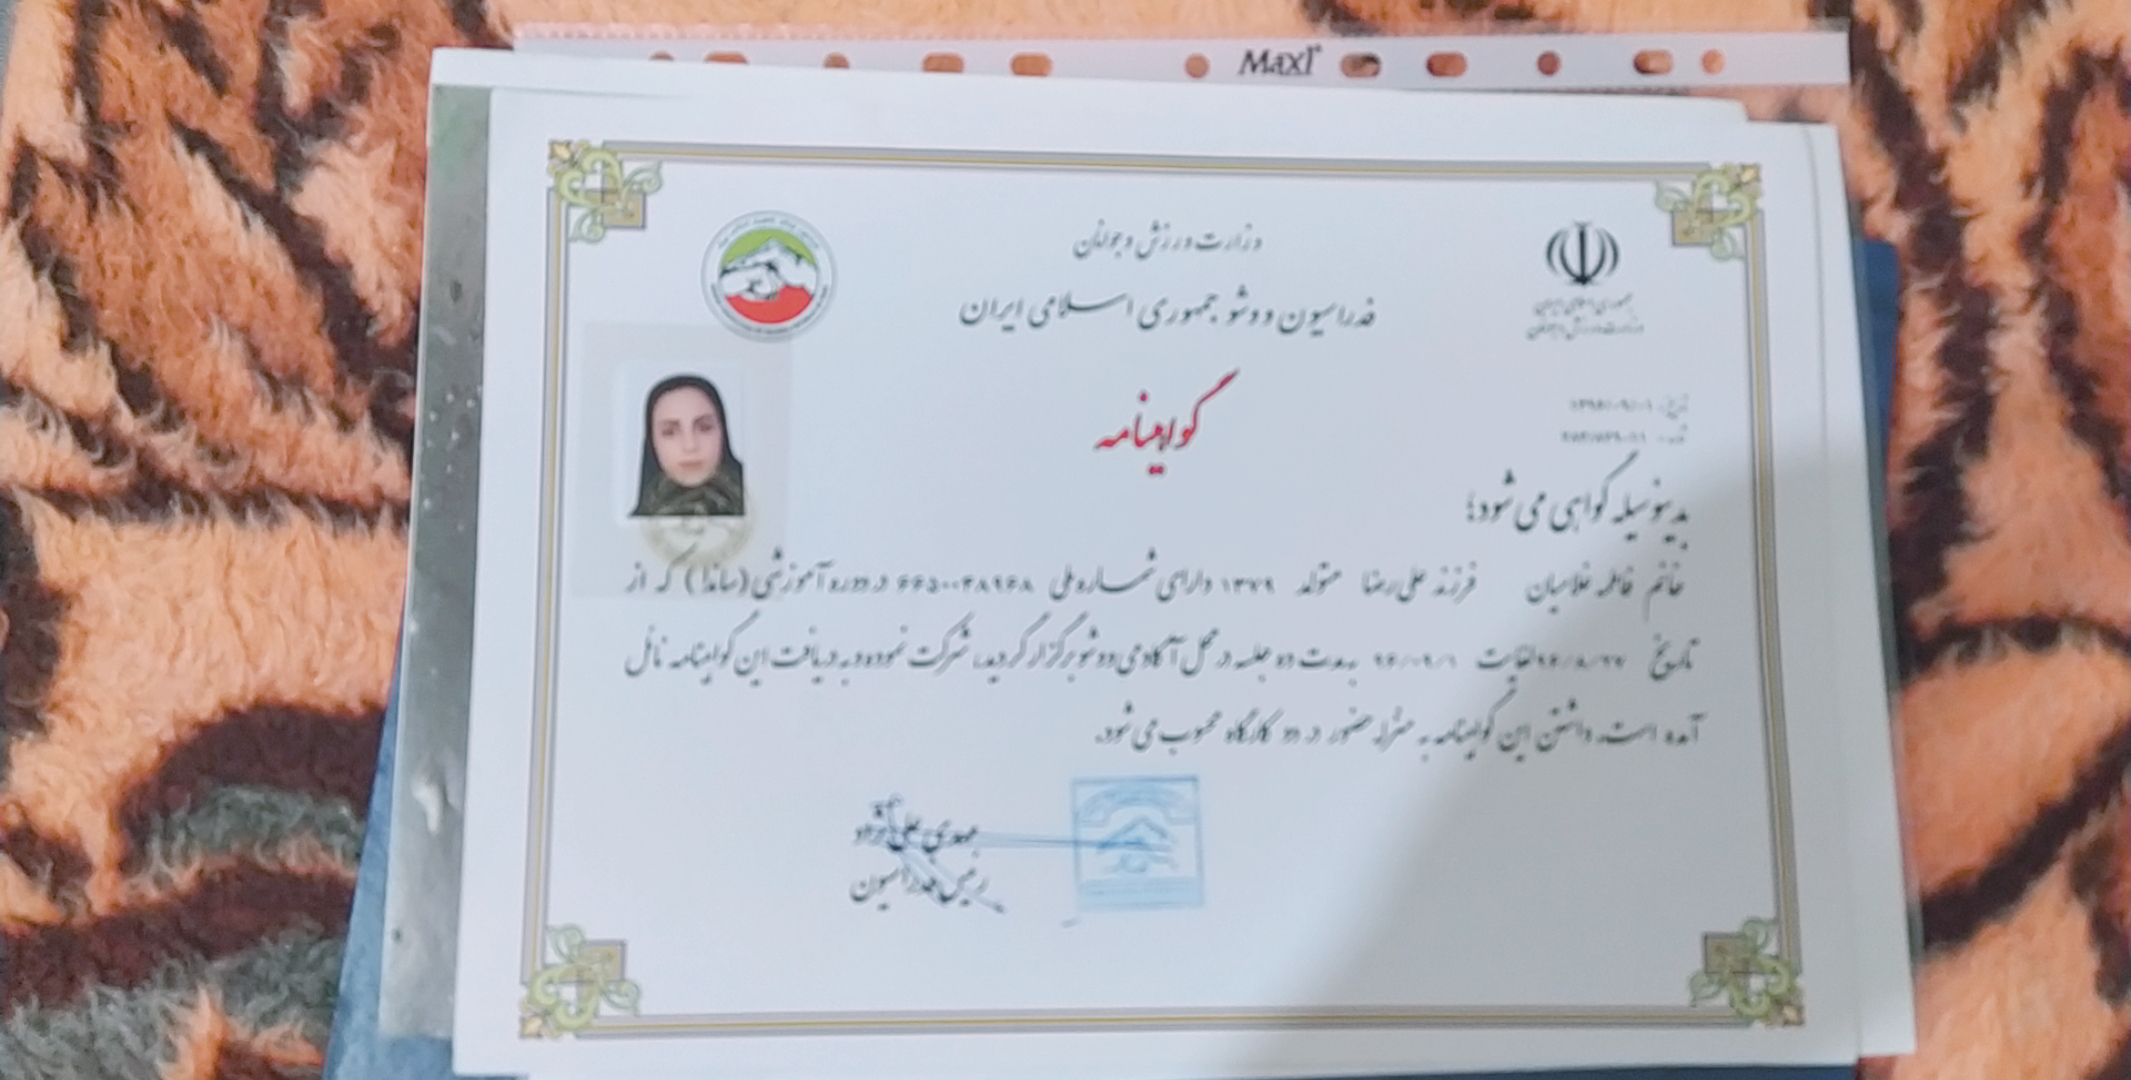 Maxi
وزارت ورزش و جوانان
فدراسیون ووشو جمهوری اسلامی ایران
جمهوری اسلامی ایران
وزارت ورزش و جوانان
گواهینامه
تاریخ:
بدینوسیله گواهی می شود؛
خانم فاطمه غلامیان فرزند علی رضا متولد ۱۳۷۹ دارای شماره ملی در دوره آموزشی (ساندا) که از
تاریخ ۹۶/۰۸/۲۷ لغایت ۹۶/۰۹/۱ به مدت ده جلسه در محل آکادمی ووشو برگزار گردید، شرکت نموده و به دریافت این گواهینامه نائل
آمده است. داشتن این گواهینامه به منزله حضور در دو کارگاه محسوب می شود.
مهدی علی نژاد
رئیس فدراسیون